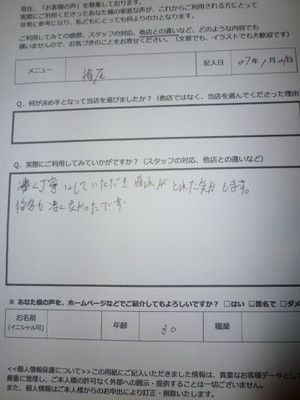 現在、「お客様の声」を募集しております。
実際にご利用くださったあなた様の率直な声が、これからご利用される方にとって
非常に参考になり、私どもにとっても何よりの力となります。
ご利用してみての感想、スタッフの対応、他店との違いなど、どのような内容でも
構いませんので、お気づきのことをお寄せください。(文章でも、イラストでも大歓迎です)
メニュー
記入日
年 月 日
Q. 何が決め手となって当店を選びましたか？（他店ではなく、当店を選んでくださった理由
Q. 実際にご利用してみていかがですか？（スタッフの対応、他店との違いなど）
凄く丁寧にしていただき疲れがとれた気がします。
接客も凄く良かったです
※ あなた様の声を、ホームページなどでご紹介してもよろしいですか？ □はい ☑匿名で □ダメ
お名前
(イニシャル可)
年齢
30
職業
<<個人情報保護について>>この用紙にご記入いただきました情報は、貴重なお客様データとし
厳重に管理し、ご本人様の許可なく外部への開示・提供することは一切ございません。
また、個人情報はご本人様からのお申出により訂正・削除いたします。